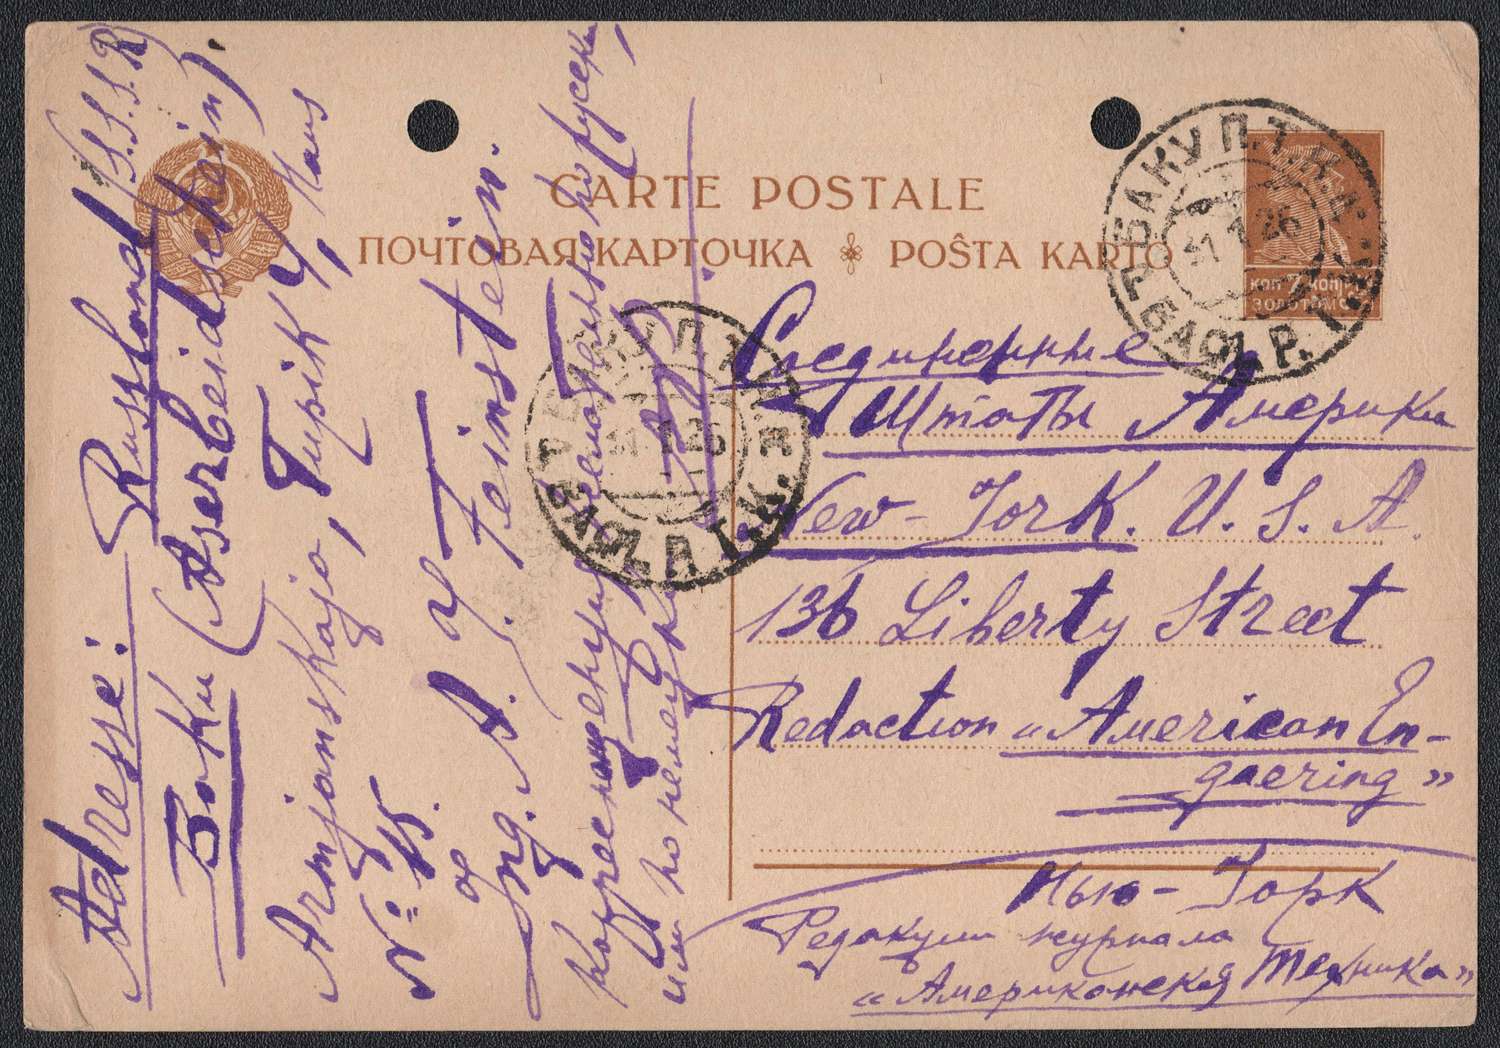 CARTE POSTALE
ПОЧТОВАЯ КАРТОЧКА ❋ POŜTA KARTO
БАКУ П.Т.К.
31 1 26
БАКУ П.Т.К.
31 1 26
КОП 7 КОП
ЗОЛОТОМ
Соединенные
Штаты Америки
New-Jork. U. S. A
136 Liberty Street
Redaction „American En-
gaering"
Нью-Йорк
Редакции журнала
„Американская Техника"
Adresse: Russland (S.S.S.R)
Baku (Aserbeidschain).
Armjanskaja, Tupik 4, Haus
№ 15.
Ing. A. J. Feinstein.
Корреспонденция желательно по русски,
или по немецки